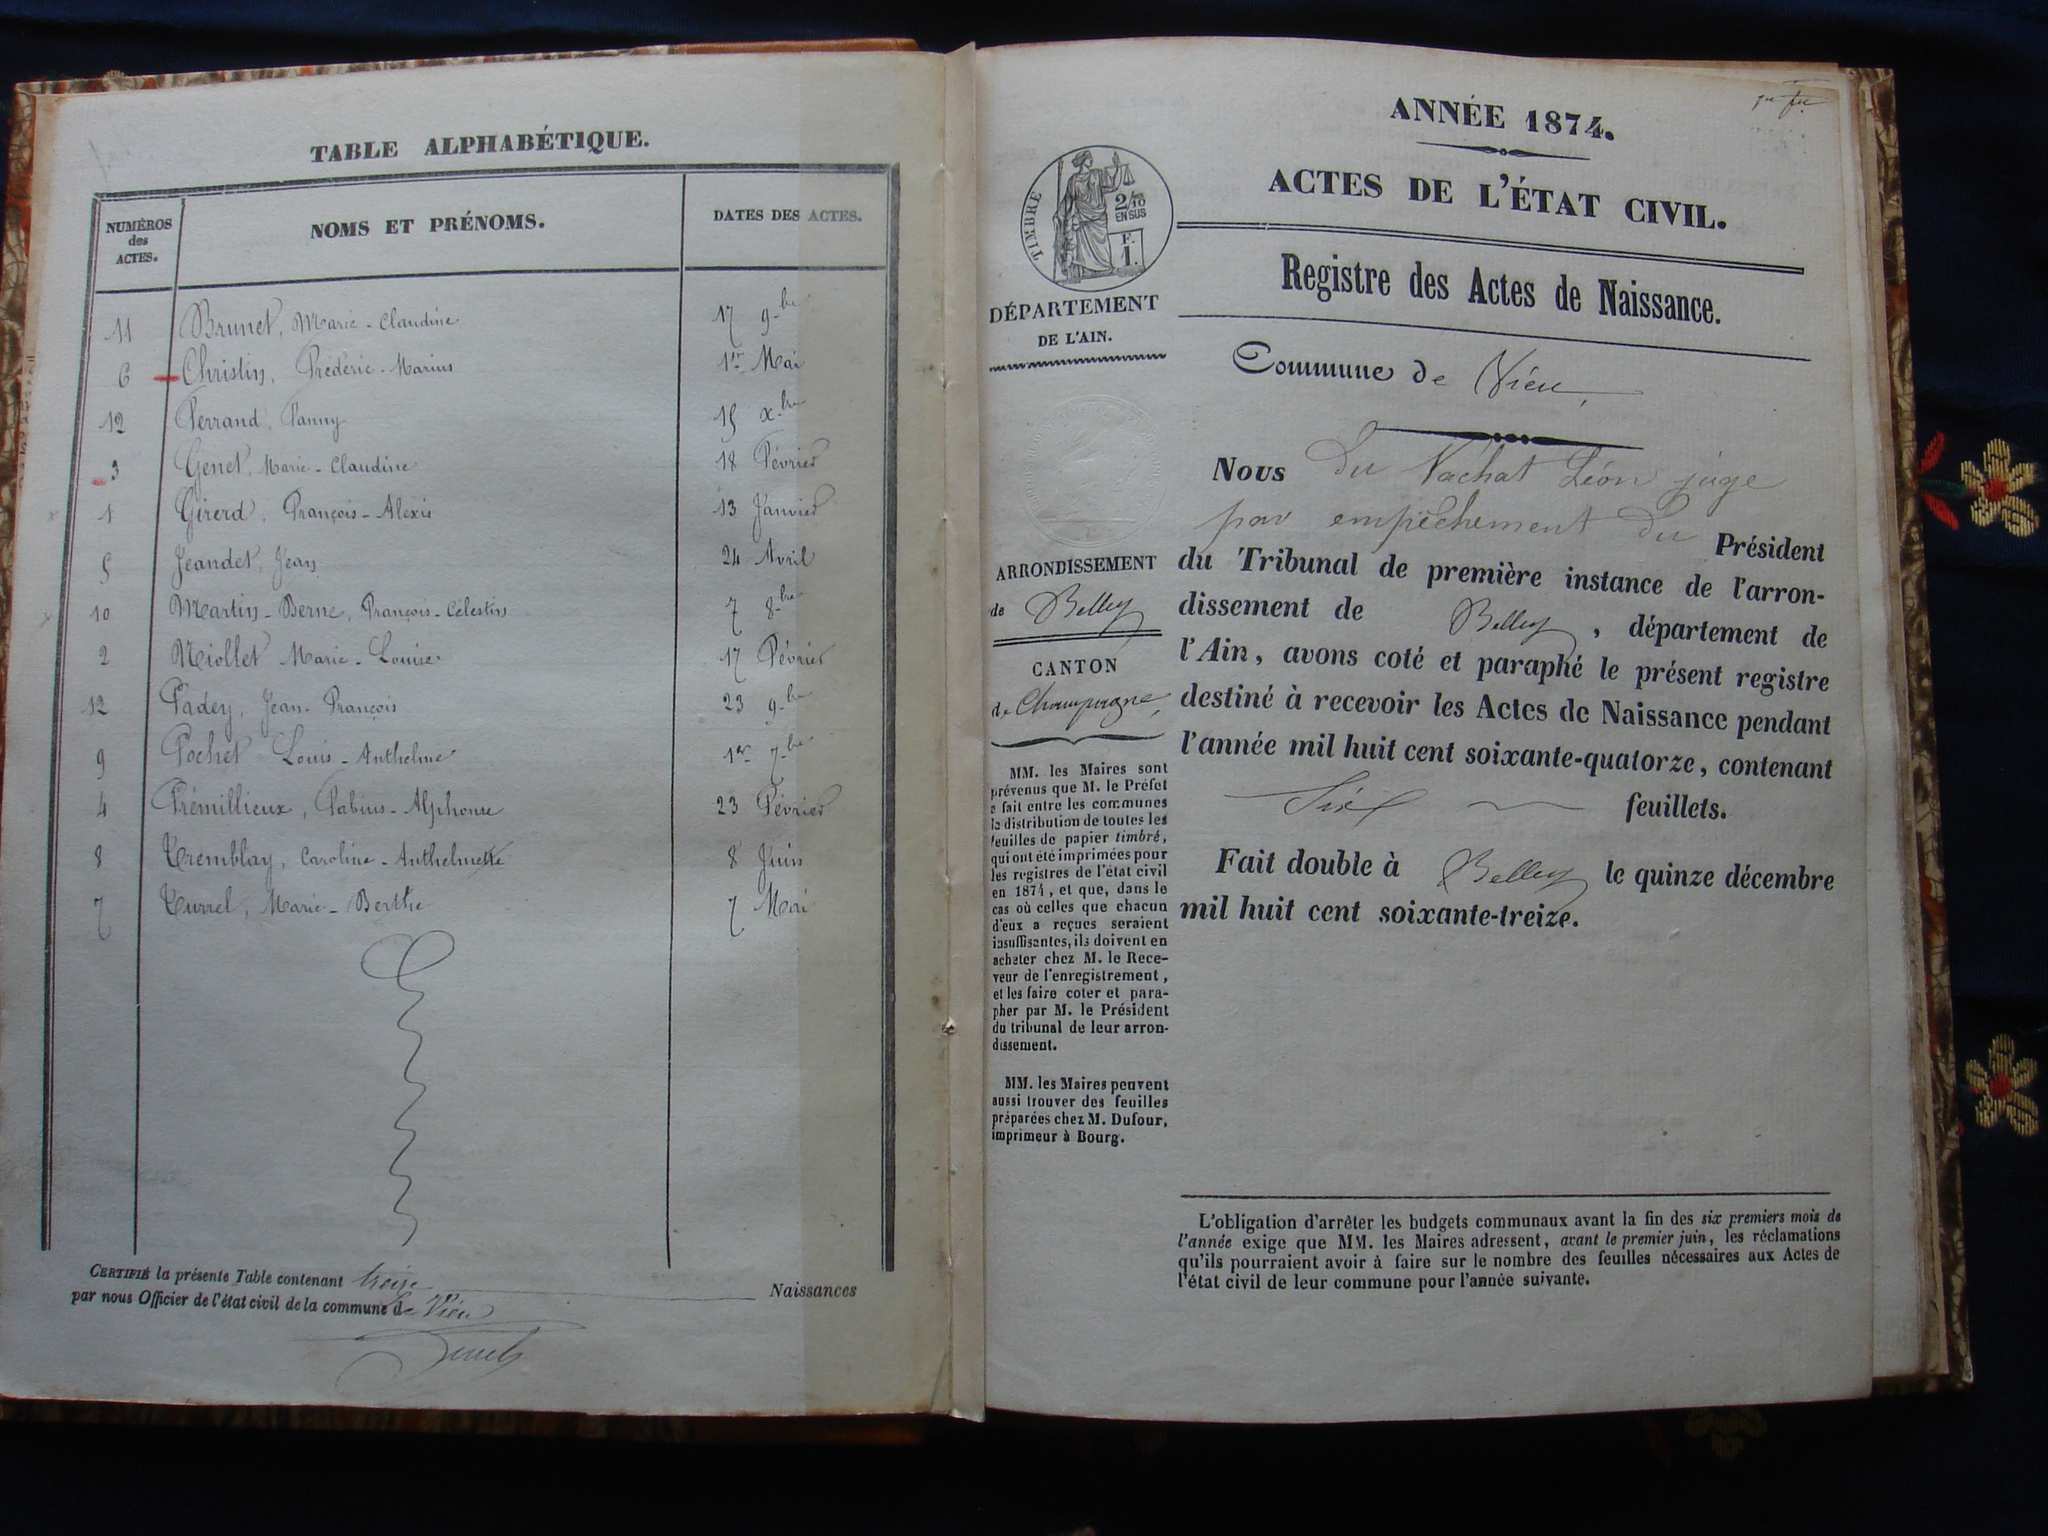 TABLE ALPHABÉTIQUE.
NUMÉROS des ACTES. NOMS ET PRÉNOMS. DATES DES ACTES.
11 Brunet, Marie-Claudine 17 9-bre
6 Christin, Frédéric-Marius 1er Mai
12 Ferrand, Fanny 15 x-bre
3 Genet, Marie-Claudine 18 Février
1 Girerd, François-Alexis 13 Janvier
5 Jeandet, Jean 24 Avril
10 Martin-Berne, François-Célestin 7 8-bre
2 Miollet Marie-Louise 17 Février
12 Padey, Jean-François 23 9-bre
9 Pochet Louis-Anthelme 1er 7-bre
4 Prémillieux, Fabius-Alphonse 23 Février
8 Tremblay, Caroline-Anthelmette 8 Juin
7 Turrel, Marie-Berthe 7 Mai
CERTIFIÉ la présente Table contenant treize Naissances
par nous Officier de l'état civil de la commune de Vieu
ANNÉE 1874.
ACTES DE L'ÉTAT CIVIL.
Registre des Actes de Naissance.
TIMBRE
2/10
EN SUS
F.
1.
DÉPARTEMENT
DE L'AIN.
ARRONDISSEMENT
de Belley
CANTON
de Champagne,
MM. les Maires sont
prévenus que M. le Préfet
a fait entre les communes
la distribution de toutes les
feuilles de papier timbré,
qui ont été imprimées pour
les registres de l'état civil
en 1874, et que, dans le
cas où celles que chacun
d'eux a reçues seraient
insuffisantes, ils doivent en
acheter chez M. le Rece-
veur de l'enregistrement,
et les faire coter et para-
pher par M. le Président
du tribunal de leur arron-
dissement.
MM. les Maires peuvent
aussi trouver des feuilles
préparées chez M. Dufour,
imprimeur à Bourg.
Commune de Vieu,
Nous Du Vachat Léon juge
par empêchement du Président
du Tribunal de première instance de l'arron-
dissement de Belley, département de
l'Ain, avons coté et paraphé le présent registre
destiné à recevoir les Actes de Naissance pendant
l'année mil huit cent soixante-quatorze, contenant
Six feuillets.
Fait double à Belley le quinze décembre
mil huit cent soixante-treize.
L'obligation d'arrêter les budgets communaux avant la fin des six premiers mois de
l'année exige que MM. les Maires adressent, avant le premier juin, les réclamations
qu'ils pourraient avoir à faire sur le nombre des feuilles nécessaires aux Actes de
l'état civil de leur commune pour l'année suivante.